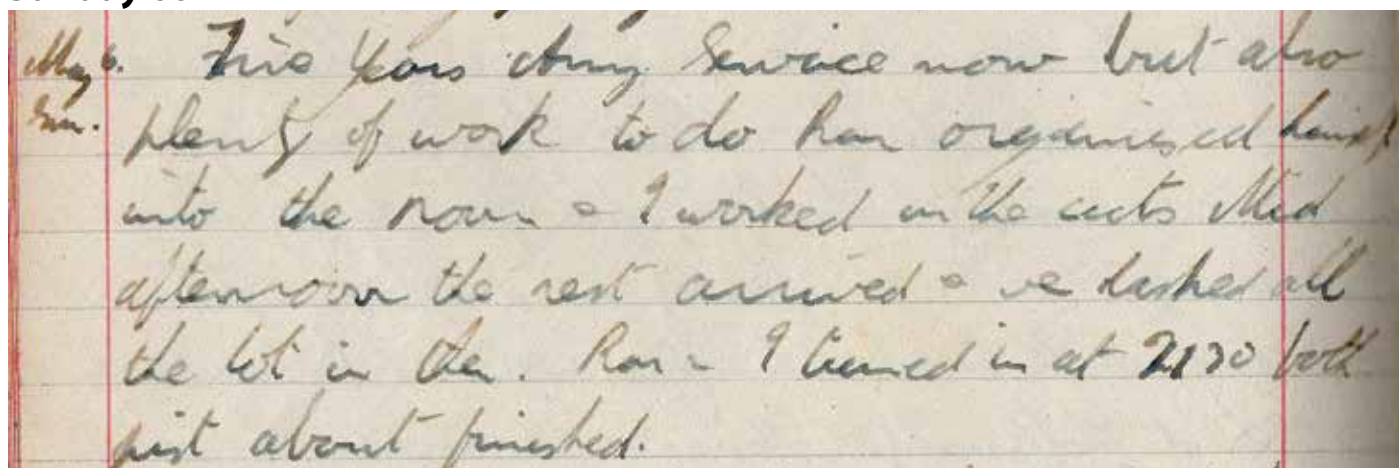 May 6. Five Years Army Service now but also
Sun. plenty of work to do Ron organised himself
into the room & I worked in the acts Mid
afternoon the rest arrived & we lashed all
the lot in then. Ron & I turned in at 2130 both
just about finished.